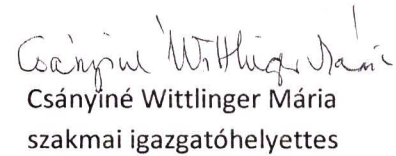 Csányiné Wittlinger Mária
Csányiné Wittlinger Mária
szakmai igazgatóhelyettes